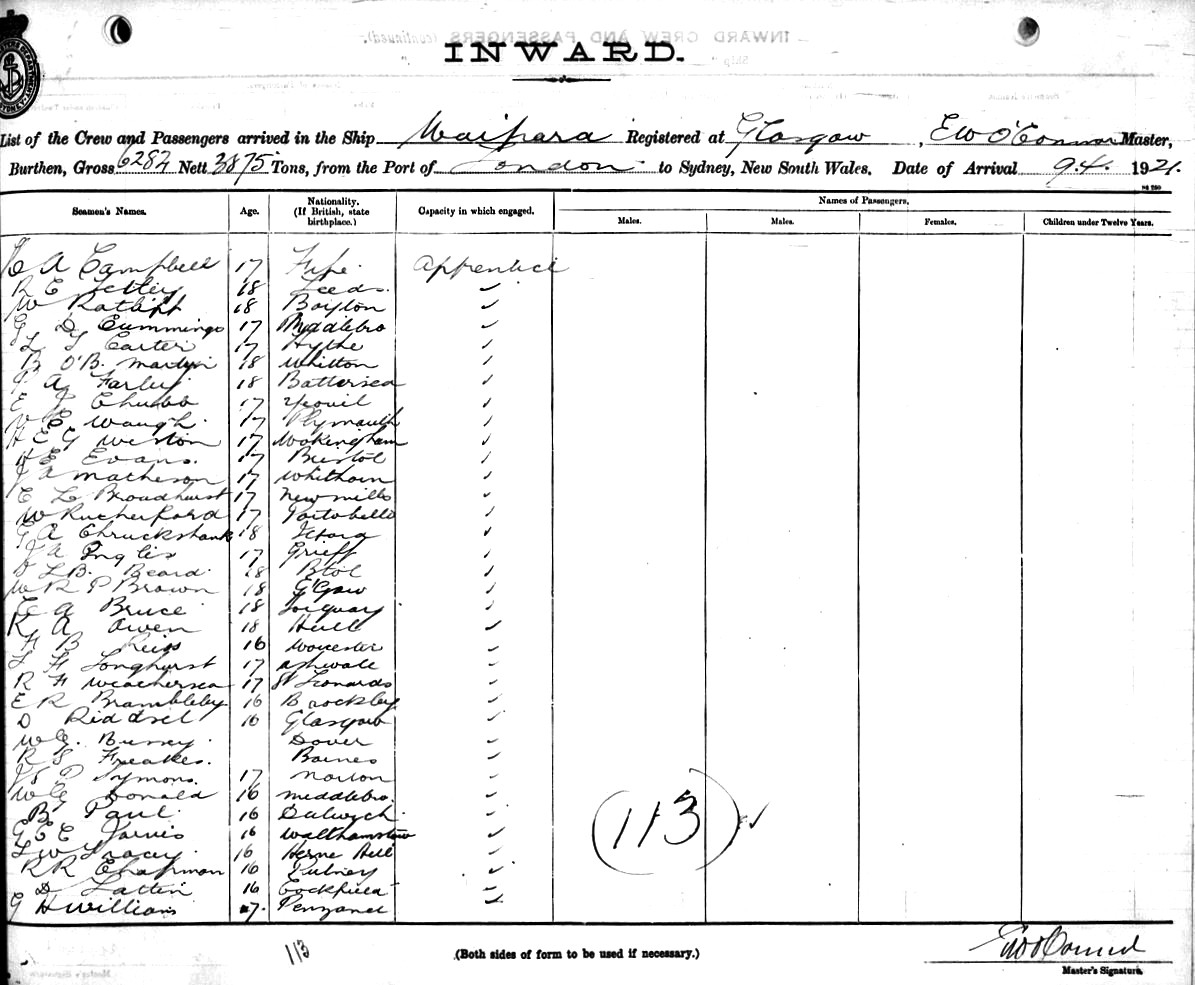 INWARD.
List of the Crew and Passengers arrived in the Ship Waipara Registered at Glasgow, E W O'Connor Master,
Burthen, Gross 6287 Nett 3875 Tons, from the Port of London to Sydney, New South Wales. Date of Arrival 9.4. 1921.
Seamen's Names. Age. Nationality. (If British, state birthplace.) Capacity in which engaged. Names of Passengers.
Males. Males. Females. Children under Twelve Years.
A Campbell 17 Fife Apprentice
R E 18 Leeds
W 18
G D Cummings 17 Middlebro
Carter 17 Hythe
B O'B. Martyn 18 Whitton
A Farley 18 Battersea
E J Chubb 17 Yeovil
E Waugh 17 Plymouth
H E G Weston 17 Wokingham
H E Evans. 17 Bristol
J A Matheson 17 Whithorn
C L Broadhurst 17 New mills
W Rutherford 17 Portobello
G A Chruckshank 18
J A Inglis 17 Crieff
L B. Beard 18 Btol
W R P Brown 18 G'Gow
A Bruce 18 Torquay
R A Owen 18 Hull
H B 16 Worcester
L H Longhurst 17
R H 17 St Leonards
E R Brambleby 16 Brockley
D 16 Glasgow
W G. Dover
R S Freakes. Barnes
P Symons 17 Norton
W G Donald 16 Middlebro.
B Paul 16 Dulwich
G E C Jarvis 16 Walthamstow
L W Tracey 16 Herne Hill
R R Chapman 16 Putney
D 16 Cockfield
G H Williams 17. Penzance
(113)
113
(Both sides of form to be used if necessary.)
E W O'Connor
Master's Signature.